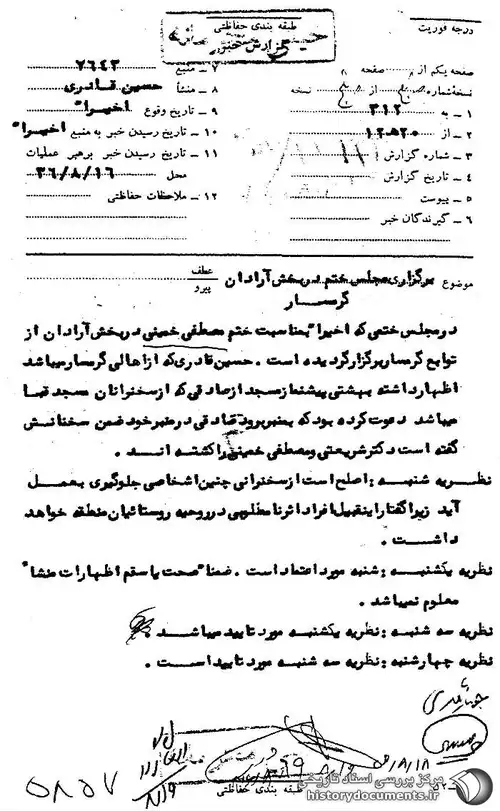 درجه فوریت
طبقه بندی حفاظتی
گزارش خبر
صفحه یکم از صفحه
نسخه شماره از نسخه
۱ - به ۳۱۲
۲ - از ۱۲ه۲۰
۳ - شماره گزارش
۴ - تاریخ گزارش
۵ - پیوست
۶ - گیرندگان خبر
۷ - منبع ۷۶۴۳
۸ - منشأ حسین قادری
۹ - تاریخ وقوع اخیرا"
۱۰ - تاریخ رسیدن خبر به منبع اخیرا"
۱۱ - تاریخ رسیدن خبر برهبر عملیات
محل ۳۶/۸/۱۶
۱۲ - ملاحظات حفاظتی
موضوع برگزاری مجلس ختم در بخش آرادان
عطف
پیرو
گرمسار
در مجلس ختمی که اخیرا" بمناسبت ختم مصطفی خمینی در بخش آرادان از
توابع گرمسار برگزار گردیده است . حسین قادری که از اهالی گرمسار میباشد
اظهار داشته بهشتی پیشنماز مسجد از صادقی که از سخنرانان مسجد قبا
میباشد دعوت کرده بود که بمنبر برود صادقی در منبر خود ضمن سخنانش
گفته است دکتر شریعتی و مصطفی خمینی را کشته اند .
نظریه شنبه : اصلح است از سخنرانی چنین اشخاصی جلوگیری بعمل
آید زیرا گفتار اینقبیل افراد اثر نامطلوبی در روحیه روستائیان منطقه خواهد
داشت .
نظریه یکشنبه : شنبه مورد اعتماد است . ضمنا" صحت یا سقم اظهارات منشا"
معلوم نمیباشد .
نظریه سه شنبه : نظریه یکشنبه مورد تایید میباشد .
نظریه چهارشنبه : نظریه سه شنبه مورد تایید است .
طبقه بندی حفاظتی
۵۸۵۷
مرکز بررسی اسناد تاریخی
historydocuments.ir